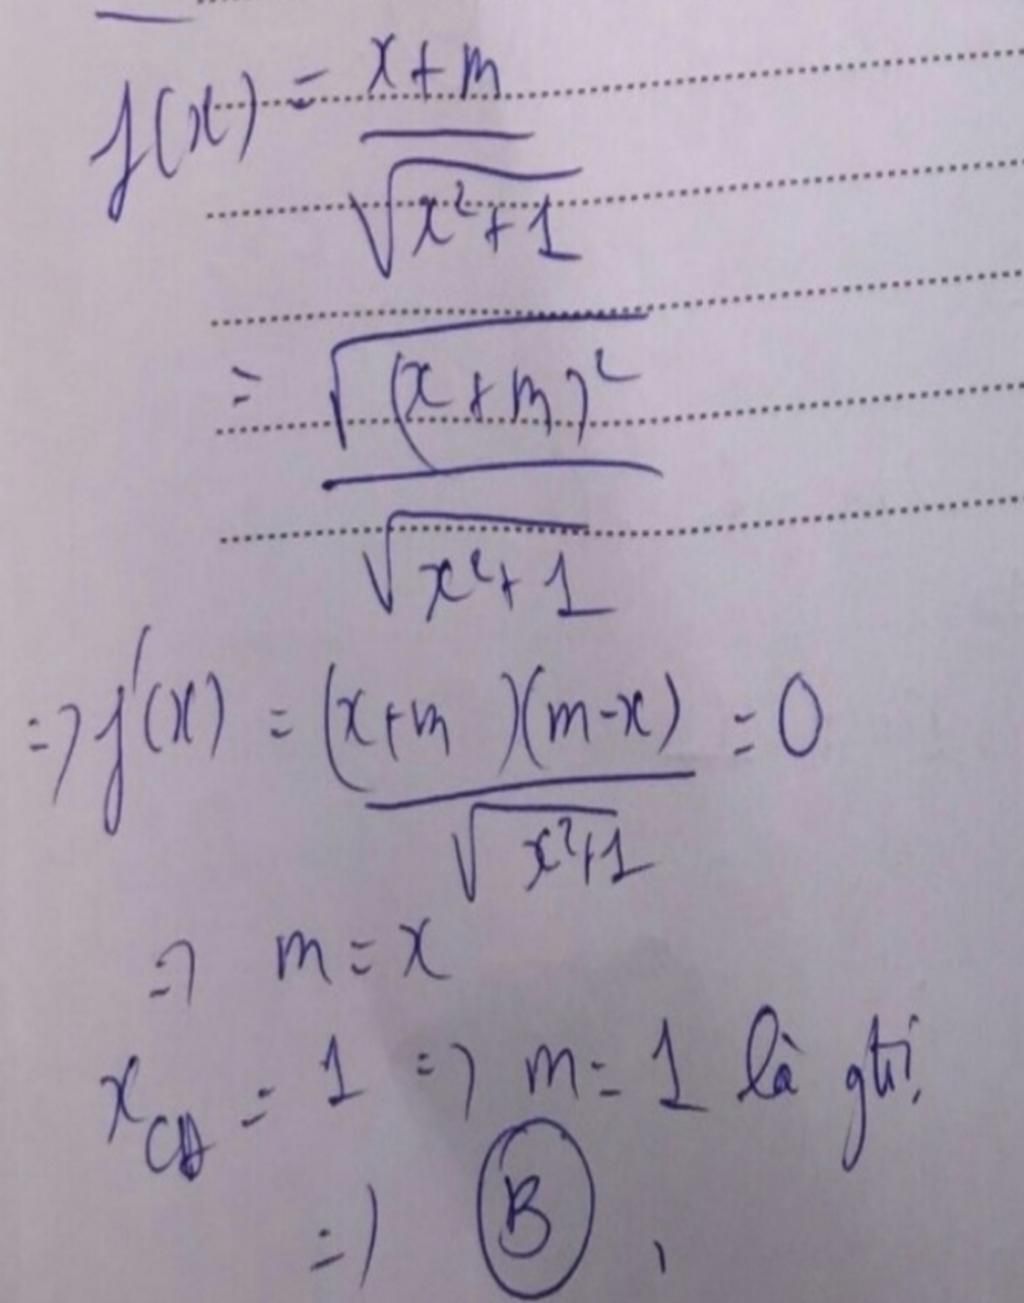 f(x) = (x+m)/√(x²+1)
= √((x+m)²)/√(x²+1)
=> f'(x) = (x+m)(m-x)/√(x²+1) = 0
=> m = x
x_CĐ = 1 => m = 1 là gtrị
=> B